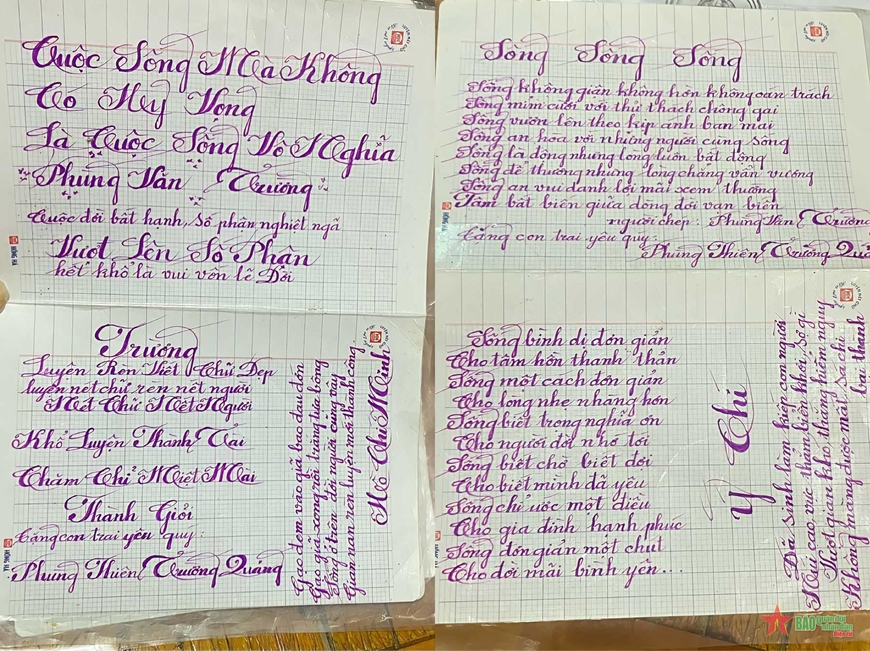 Cuộc Sống Mà Không
Có Hy Vọng
Là Cuộc Sống Vô Nghĩa
Phùng Văn Trường
Cuộc đời bất hạnh, số phận nghiệt ngã
Vượt Lên Số Phận
hết khổ là vui vốn lẽ Đời
Trường
Luyện Rèn Viết Chữ Đẹp
luyện nét chữ rèn nết người
Nét Chữ Nết Người
Khổ Luyện Thành Tài
Chăm Chỉ Miệt Mài
Thành Giỏi
Tặng con trai yêu quý:
Phùng Thiên Trường Quảng
Gạo đem vào giã bao đau đớn
Gạo giã xong rồi trắng tựa bông
Sống ở trên đời người cũng vậy
Gian nan rèn luyện mới thành công
Hồ Chí Minh
Sống Sống Sống
Sống không giận không hờn không oán trách
Sống mỉm cười với thử thách chông gai
Sống vươn lên theo kịp ánh ban mai
Sống an hòa với những người cùng sống
Sống là động nhưng lòng luôn bất động
Sống để thương nhưng lòng chẳng vấn vương
Sống an vui danh lợi mãi xem thường
Tâm bất biến giữa dòng đời vạn biến
người chép: Phùng Văn Trường
Tặng con trai yêu quý:
Phùng Thiên Trường Quả
Sống bình dị đơn giản
Cho tâm hồn thanh thản
Sống một cách đơn giản
Cho lòng nhẹ nhàng hơn
Sống biết trọng nghĩa ơn
Cho người đời nhớ tới
Sống biết chờ biết đợi
Cho biết mình đã yêu
Sống chỉ ước một điều
Cho gia đình hạnh phúc
Sống đơn giản một chút
Cho đời mãi bình yên...
Ý Chí
Đã sinh làm kiếp con người
Núi cao, vực thẳm biển khơi sợ gì
Vượt gian khó thắng hiểm nguy
Không màng được mất, sá chi
bại thành
BÁO Quân đội nhân dân
Điện tử
HỒNG HÀ